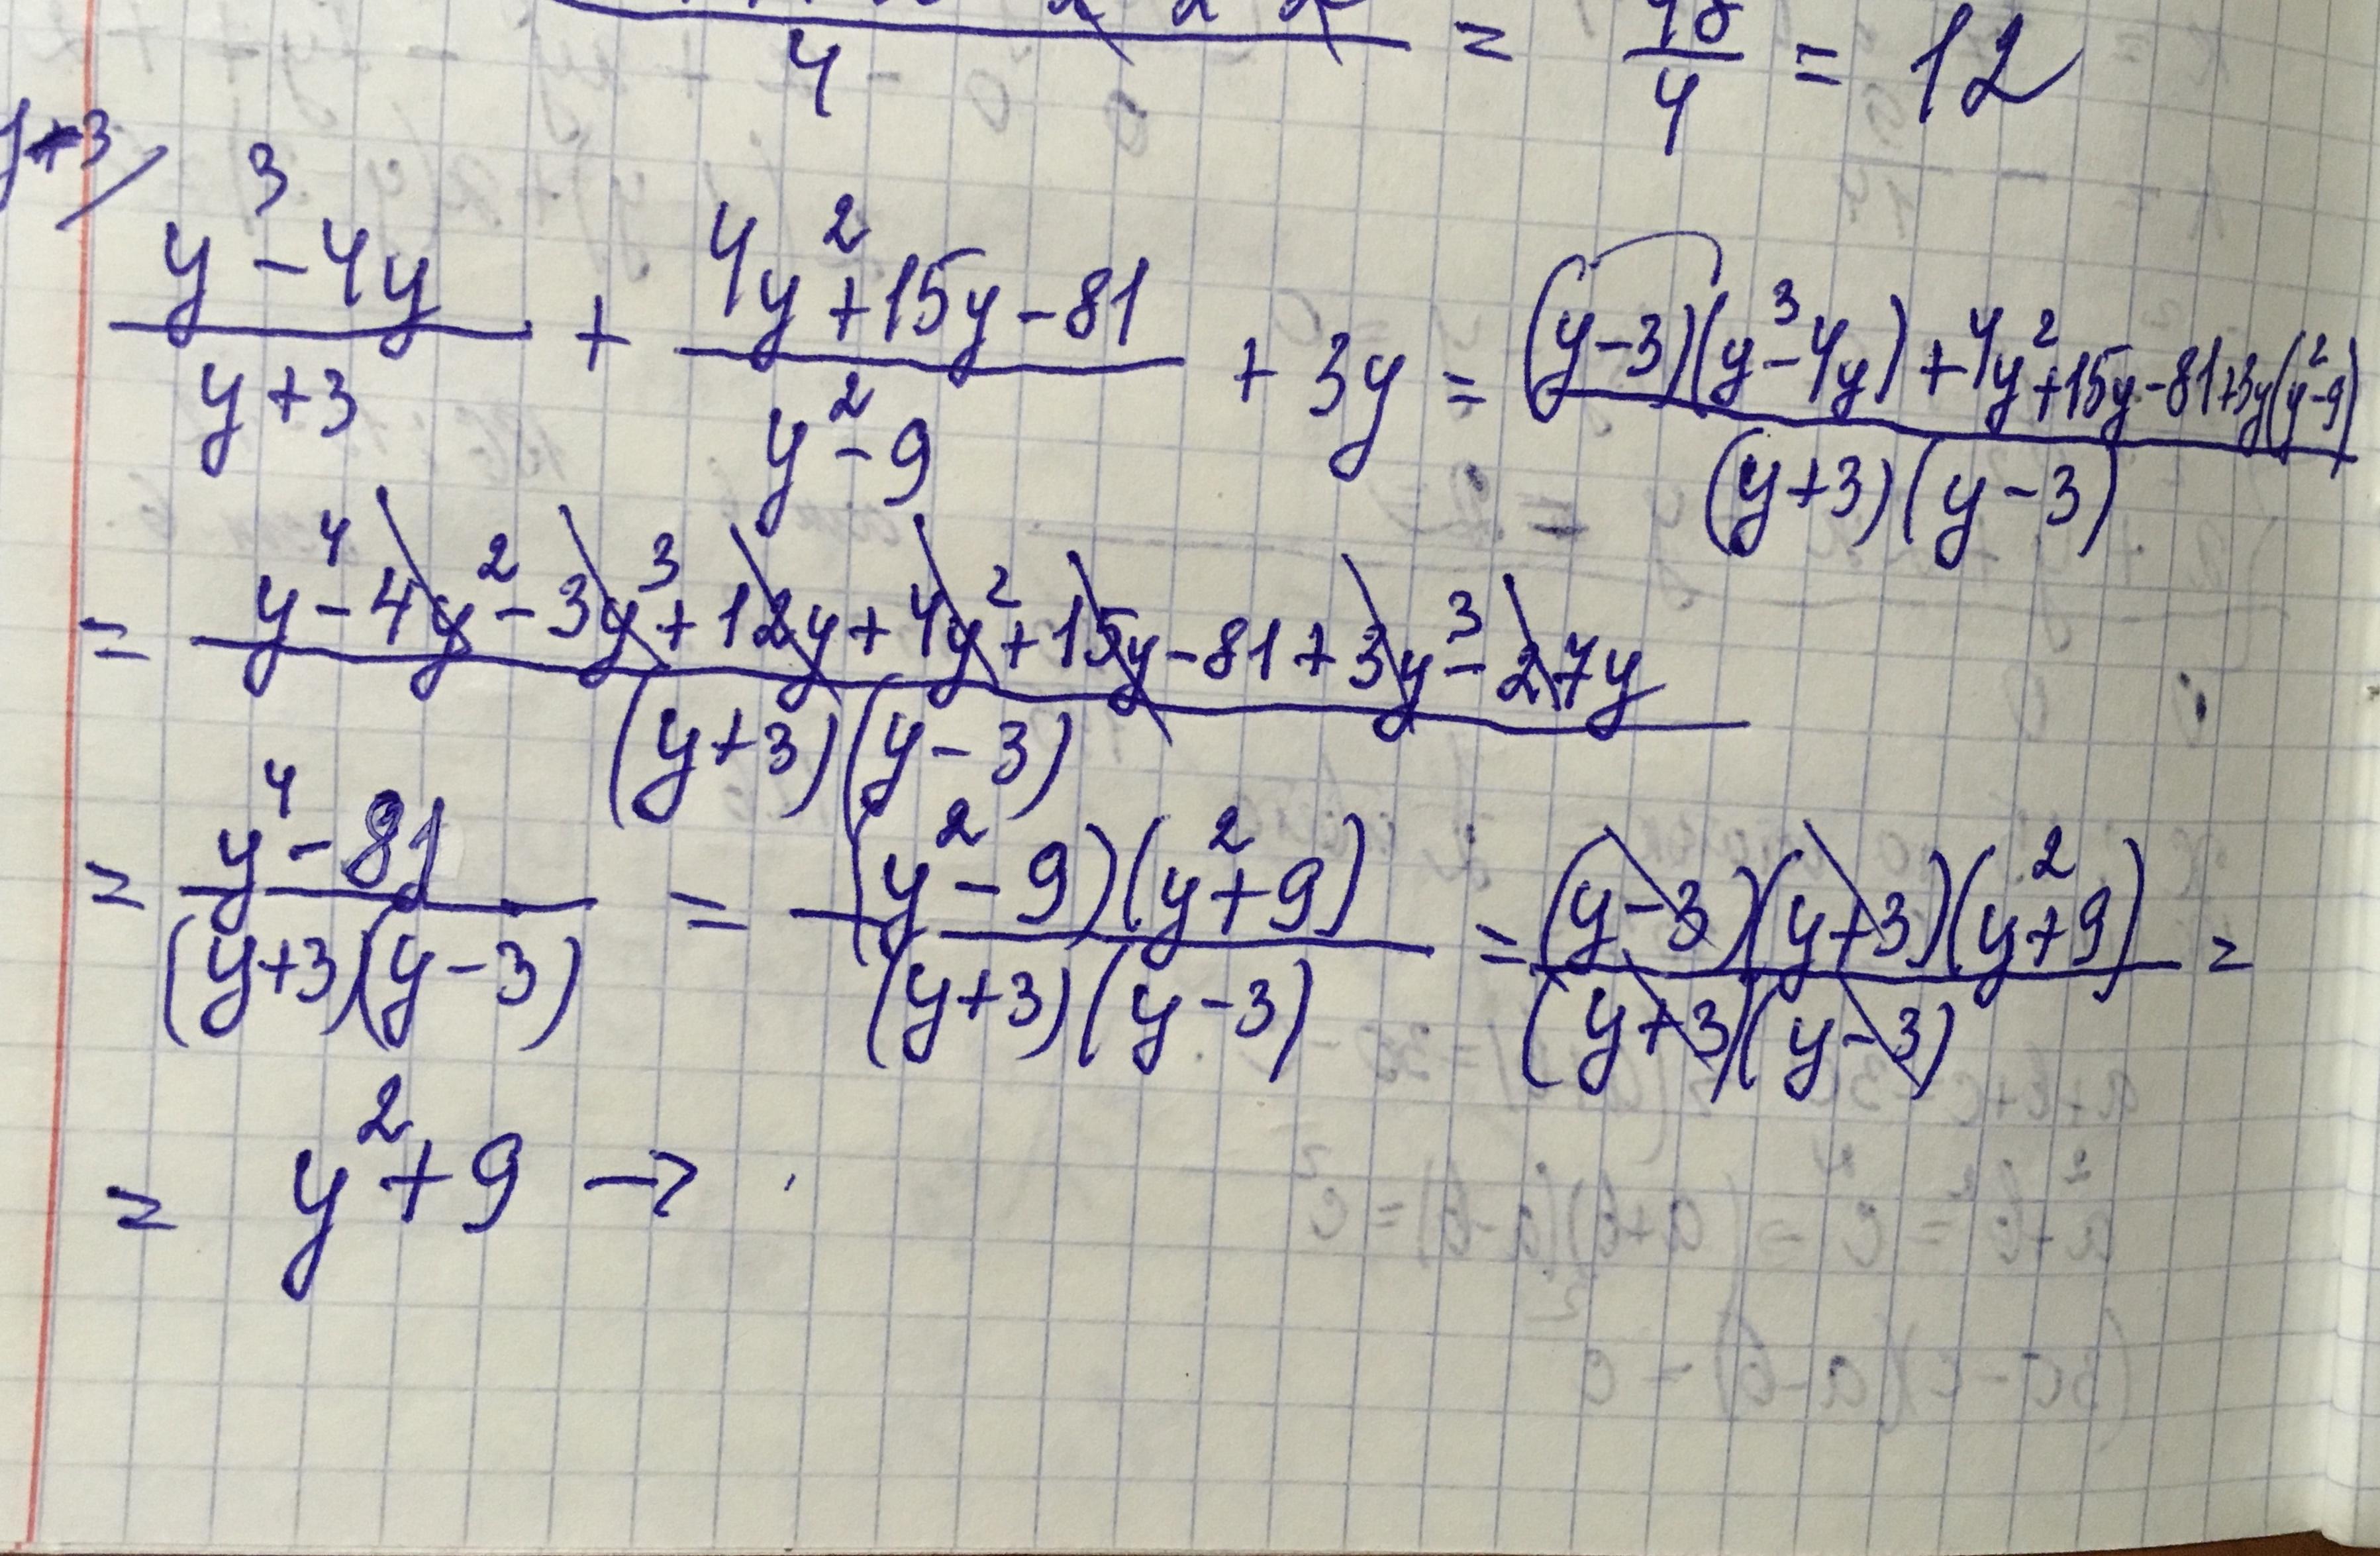 4 = 48/4 = 12
(y^3-4y)/(y+3) + (4y^2+15y-81)/(y^2-9) + 3y = ((y-3)(y^3-4y)+4y^2+15y-81+3y(y^2-9))/((y+3)(y-3))
= (y^4-4y^2-3y^3+12y+4y^2+15y-81+3y^3-27y)/((y+3)(y-3))
= (y^4-81)/((y+3)(y-3)) = ((y^2-9)(y^2+9))/((y+3)(y-3)) = ((y-3)(y+3)(y^2+9))/((y+3)(y-3)) =
= y^2+9 →